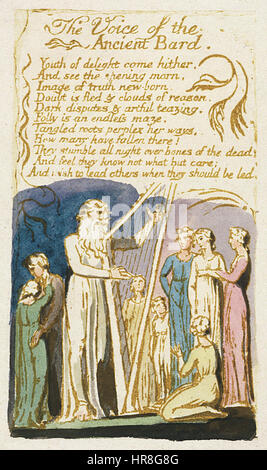 The Voice of the
Ancient Bard.
Youth of delight come hither.
And see the opening morn.
Image of truth new-born.
Doubt is fled & clouds of reason.
Dark disputes & artful teazing.
Folly is an endless maze.
Tangled roots perplex her ways,
How many have fallen there!
They stumble all night over bones of the dead;
And feel they know not what but care;
And wish to lead others when they should be led.
alamy
Image ID: HR8G8G
www.alamy.com